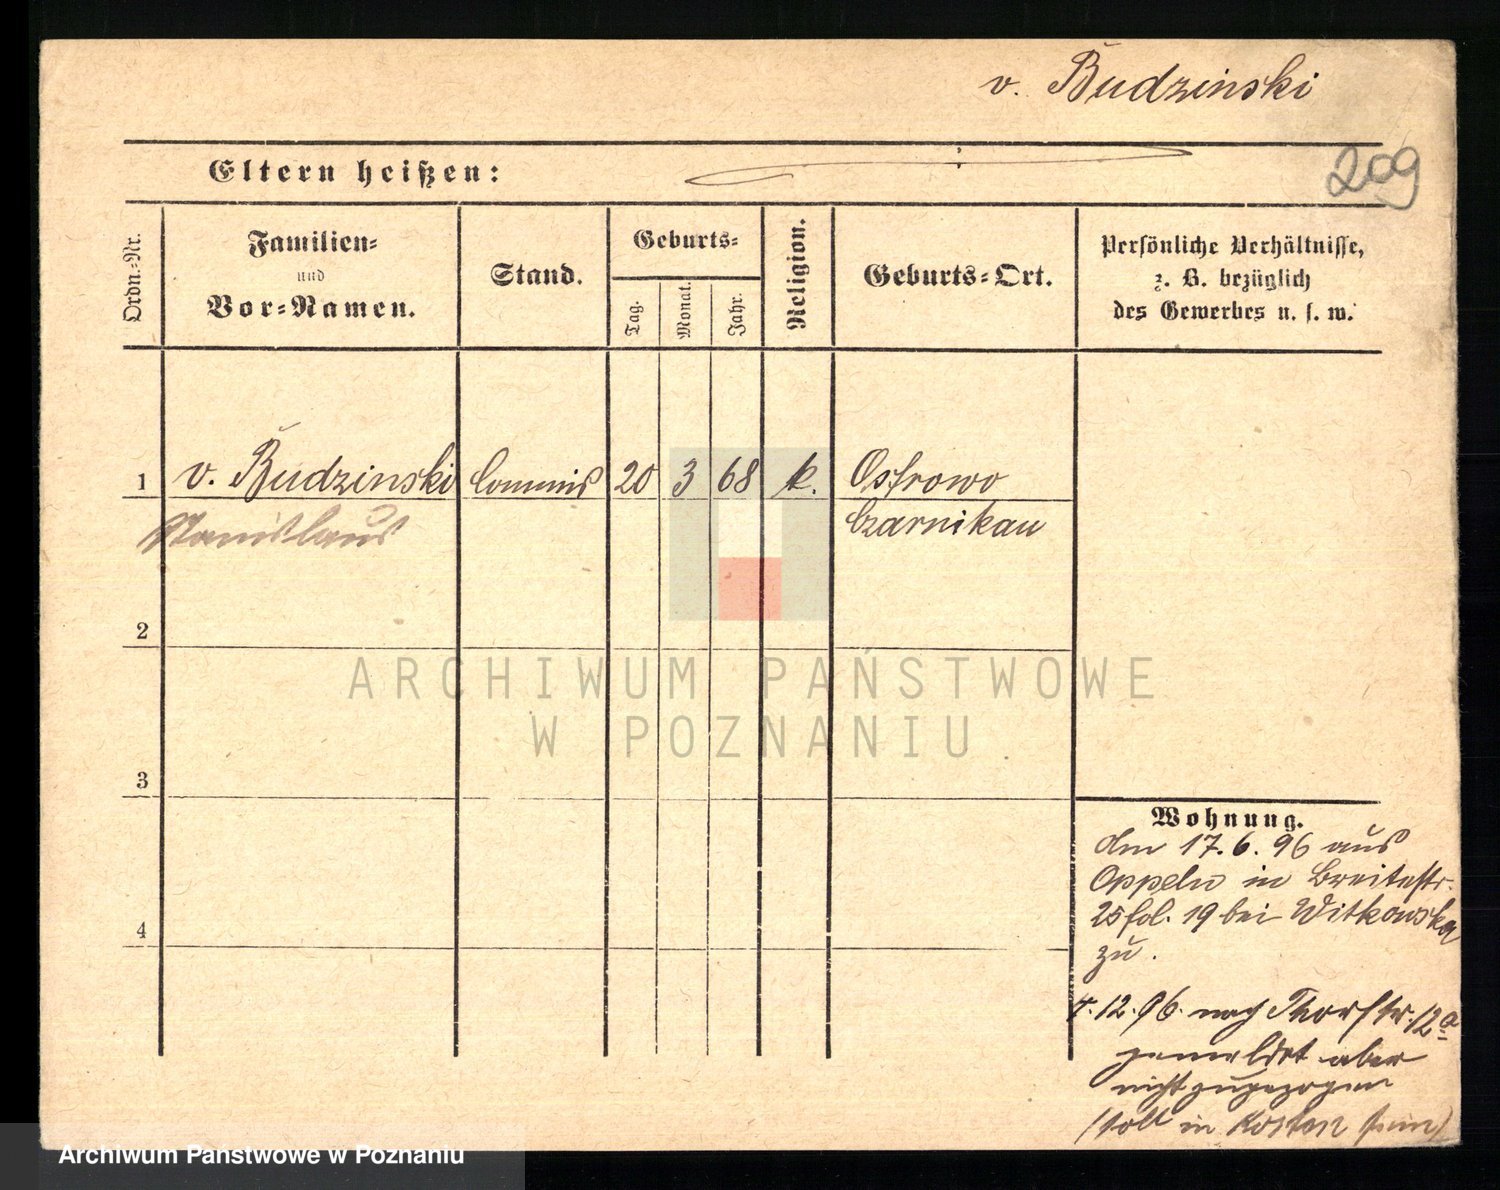 v. Budzinski
Eltern heißen:
209
Ordn.-Nr.
Familien-
und
Vor-Namen.
Stand.
Geburts-
Tag.
Monat.
Jahr.
Religion.
Geburts-Ort.
Persönliche Verhältnisse,
z. B. bezüglich
des Gewerbes u. s. w.
1 v. Budzinski Commis 20 3 68 k. Ostrowo
Stanislaus Czarnikau
2
3
4
Wohnung.
den 17.6.96 aus
Oppeln in Breitestr.
25 fol. 19 bei Witkowska
zu.
4.12.96. nach Thorstr. 12a
gemeldet aber
nicht zugezogen
(soll in Kosten sein)
ARCHIWUM PAŃSTWOWE
W POZNANIU
Archiwum Państwowe w Poznaniu